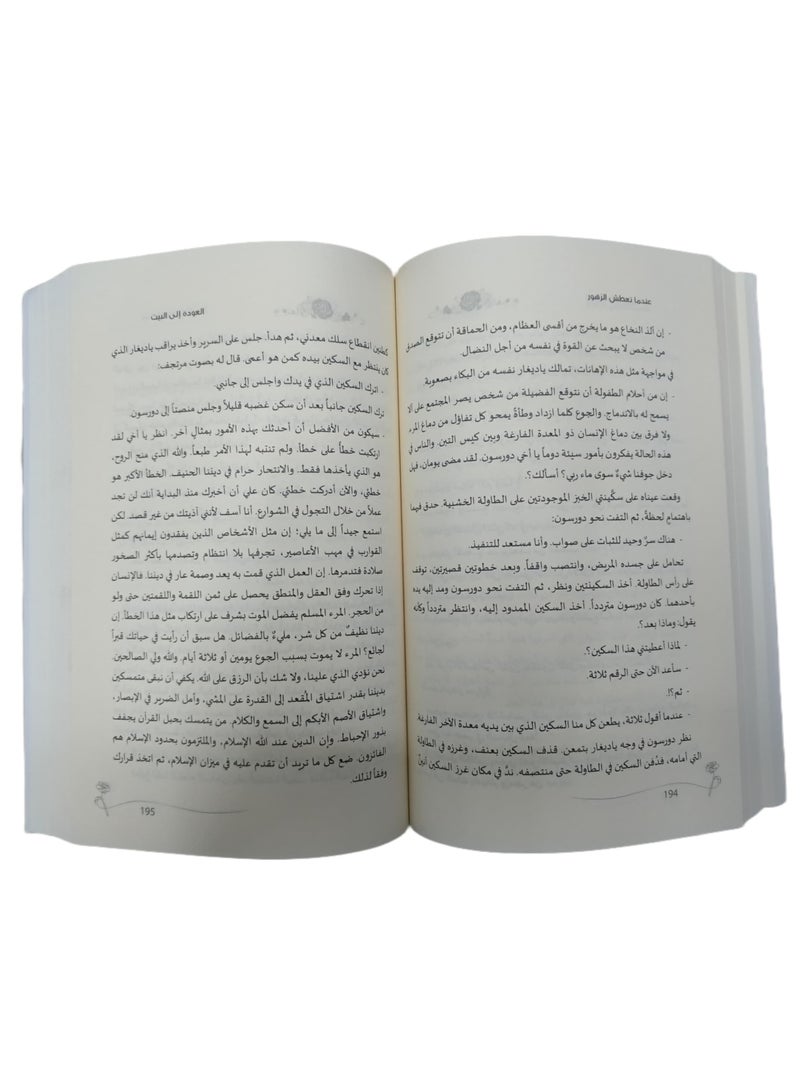 عندما تعطش الزهور
- إن ألذ النخاع هو ما يخرج من أقسى العظام، ومن الحماقة أن نتوقع الصدق
من شخص لا يبحث عن القوة في نفسه من أجل النضال.
في مواجهة مثل هذه الإهانات، تمالك ياديغار نفسه من البكاء بصعوبة.
- إن من أحلام الطفولة أن نتوقع الفضيلة من شخص يصر المجتمع على ألا
يسمح له بالاندماج. والجوع كلما ازداد وطأةً يمحو كل تفاؤل من دماغ المرء
ولا فرق بين دماغ الإنسان ذو المعدة الفارغة وبين كيس التبن. والناس في
هذه الحالة يفكرون بأمور سيئة دوماً يا أخي دورسون. لقد مضى يومان، فهل
دخل جوفنا شيءٌ سوى ماء ربي؟ أسألك؟.
وقعت عيناه على سكّينتي الخبز الموجودتين على الطاولة الخشبية. حدق فيهما
باهتمامٍ لحظةً، ثم التفت نحو دورسون:
- هناك سرٌ وحيد للثبات على صواب. وأنا مستعد للتنفيذ.
تحامل على جسده المريض، وانتصب واقفاً. وبعد خطوتين قصيرتين، توقف
على رأس الطاولة. أخذ السكينتين ونظر، ثم التفت نحو دورسون ومد إليه يده
بأحدهما. كان دورسون متردداً. أخذ السكين الممدود إليه، وانتظر متردداً وكأنه
يقول: وماذا بعد؟.
- لماذا أعطيتني هذا السكين؟.
- سأعد الآن حتى الرقم ثلاثة.
- ثم؟!.
- عندما أقول ثلاثة، يطعن كل منا السكين الذي بين يديه معدة الآخر الفارغة.
نظر دورسون في وجه ياديغار بتمعن. قذف السكين بعنف، وغرزه في الطاولة
التي أمامه، فدُفن السكين في الطاولة حتى منتصفه. ندَّ في مكان غرز السكين أنينٌ
194
العودة إلى البيت
كطنين انقطاع سلك معدني، ثم هدأ. جلس على السرير وأخذ يراقب ياديغار الذي
كان ينتظر مع السكين بيده كمن هو أعمى. قال له بصوت مرتجف:
- اترك السكين الذي في يدك واجلس إلى جانبي.
ترك السكين جانباً بعد أن سكن غضبه قليلاً وجلس منصتاً إلى دورسون.
- سيكون من الأفضل أن أحدثك بهذه الأمور بمثالٍ آخر. انظر يا أخي لقد
ارتكبت خطأً على خطأ. ولم تنتبه لهذا الأمر طبعاً. والله الذي منح الروح،
هو الذي يأخذها فقط. والانتحار حرام في ديننا الحنيف. الخطأ الأكبر هو
خطئي، والآن أدركت خطئي. كان علي أن أخبرك منذ البداية أنك لن تجد
عملاً من خلال التجول في الشوارع. أنا آسف لأنني آذيتك من غير قصد لكن
استمع جيداً إلى ما يلي؛ إن مثل الأشخاص الذين يفقدون إيمانهم كمثل
القوارب في مهب الأعاصير، تجرفها بلا انتظام وتصدمها بأكثر الصخور
صلادة فتدمرها. إن العمل الذي قمت به يعد وصمة عار في ديننا. فالإنسان
إذا تحرك وفق العقل والمنطق يحصل على ثمن اللقمة واللقمتين حتى ولو
من الحجر. المرء المسلم يفضل الموت بشرف على ارتكاب مثل هذا الخطأ. إن
ديننا نظيفٌ من كل شر، مليءٌ بالفضائل. هل سبق أن رأيت في حياتك قبراً
لجائع؟ المرء لا يموت بسبب الجوع يومين أو ثلاثة أيام. والله ولي الصالحين.
نحن نؤدي الذي علينا، ولا شك بأن الرزق على الله. يكفي أن نبقى متمسكين
بديننا بقدر اشتياق المُقعد إلى القدرة على المشي، وأمل الضرير في الإبصار،
واشتياق الأصم الأبكم إلى السمع والكلام. من يتمسك بحبل القرآن يجفف
بذور الإحباط. وإن الدين عند الله الإسلام، والملتزمون بحدود الإسلام هم
الفائزون. ضع كل ما تريد أن تقدم عليه في ميزان الإسلام، ثم اتخذ قرارك
وفقاً لذلك.
195